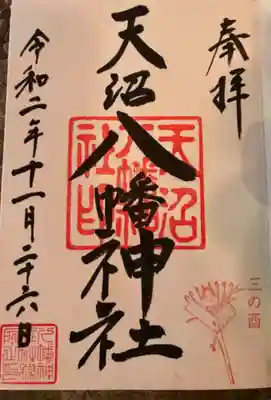 奉拝
天沼八幡神社
令和二年十一月二十六日
天沼
八幡神
社印
三の酉